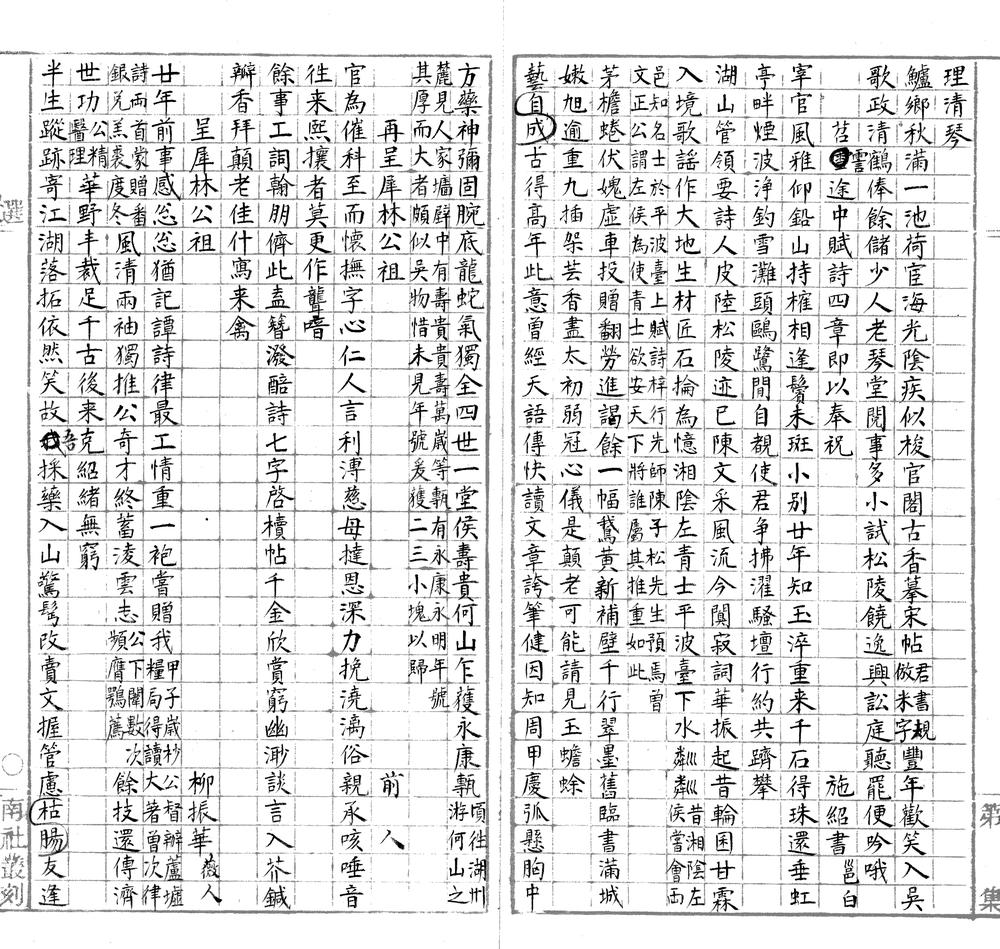 理清琴
鱸鄉秋滿一池荷宦海光陰疾似梭官閣古香摹宋帖君書規倣米字豐年歡笑入吳
歌政清鶴俸餘儲少人老琴堂閱事多小試松陵饒逸興訟庭聽罷便吟哦
莒雲途中賦詩四章即以奉祝 施紹書 邕白
宰官風雅仰鉛山持榷相逢鬢未斑小别廿年知玉淬重来千石得珠還垂虹
亭畔煙波淨釣雪灘頭鷗鷺閒自覩使君争拂濯騷壇行約共躋攀
湖山管領要詩人皮陸松陵迹已陳文采風流今闃寂詞華振起昔輪囷甘霖
入境歌謠作大地生材匠石掄為憶湘陰左青士平波臺下水粼粼昔湘陰左侯嘗會西
邑知名士於平波臺上賦詩梓行先師陳子松先生預焉曾
文正公謂左侯為使青士欲安天下將誰屬其推重如此
茅檐蜷伏媿虛車投贈翻勞進謁餘一幅鵞黃新補壁千行翠墨舊臨書滿城
嫩旭逾重九插架芸香盡太初弱冠心儀是顛老可能請見玉蟾蜍
藝自成古得高年此意曾經天語傳快讀文章誇筆健因知周甲慶弧懸胸中
第 集
方藥神彌固腕底龍蛇氣獨全四世一堂侯壽貴何山乍獲永康甎頃往湖州游何山之
麓見人家墻壁中有壽貴貴壽萬歲等甎有永康永明年號
其厚而大者頗似吳物惜未見年號爰獲二三小塊以歸
再呈犀林公祖 前人
官為催科至而懷撫字心仁人言利溥慈母撻恩深力挽澆漓俗親承咳唾音
徃来熙攘者莫更作聾喑
餘事工詞翰朋儕此盍簪潑醅詩七字啓櫝帖千金欣賞窮幽渺談言入芥鍼
瓣香拜顛老佳什寫来禽
呈犀林公祖 柳振華 薇人
廿年前事感怱怱猶記譚詩律最工情重一袍嘗贈我甲子歲抄公督辦蘆墟糧局得讀大著曾次律
詩兩首蒙贈番銀兊羔裘度冬風清兩袖獨推公奇才終蓄淩雲志公下闈數次頻膺鶚薦餘技還傳濟
世功公精醫理華野丰裁足千古後来克紹緒無窮
半生蹤跡寄江湖落拓依然笑故吾採藥入山驚髩改賣文握管慮枯腸友逢
選 南社叢刻